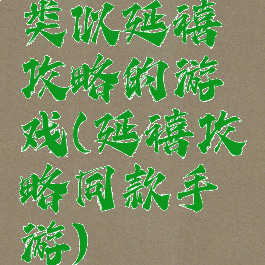 类似延禧
攻略的游
戏(延禧攻
略同款手
游)